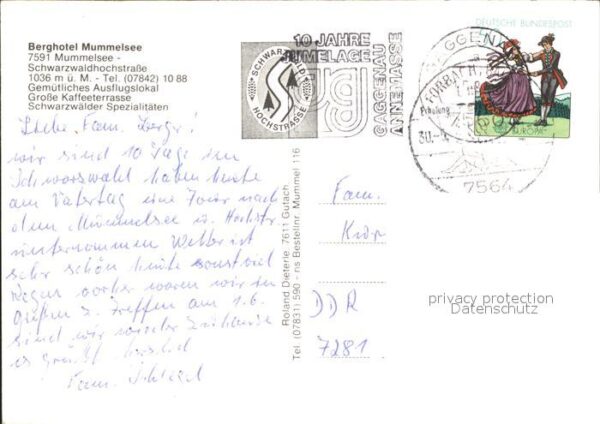 Berghotel Mummelsee
7591 Mummelsee -
Schwarzwaldhochstraße
1036 m ü. M. - Tel. (07842) 10 88
Gemütliches Ausflugslokal
Große Kaffeeterrasse
Schwarzwälder Spezialitäten
Liebe Fam.
wir sind 10 Tage im
Schwarzwald haben heute
am Vatertag eine Tour nach
dem Mummelsee
unternommen Wetter ist
sehr schön heute sonst viel
Regen vorher waren wir in
Gießen z. Treffen am 1.6.
sind wir wieder Zuhause
es grüßt herzlich
Fam.
Roland Dieterle, 7611 Gutach
Tel. (07831) 590 - ns Bestellnr. Mummel 116
SCHWARZWALD
HOCHSTRASSE
10 JAHRE
JUMELAGE
GAGGENAU
ANNEMASSE
DEUTSCHE BUNDESPOST
EUROPA
GAGGENAU
FORBACH
7564
Fam.
DDR
7281
privacy protection
Datenschutz